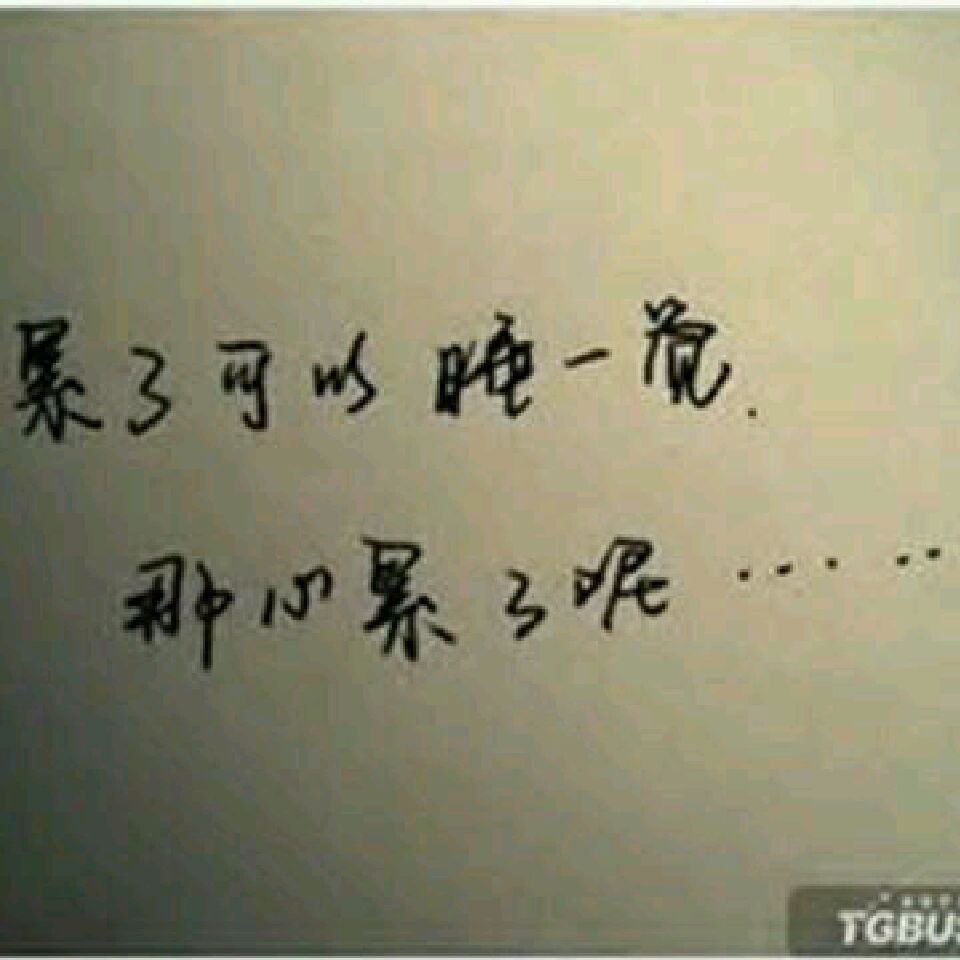 累了可以睡一觉.
那心累了呢……
TGBUS